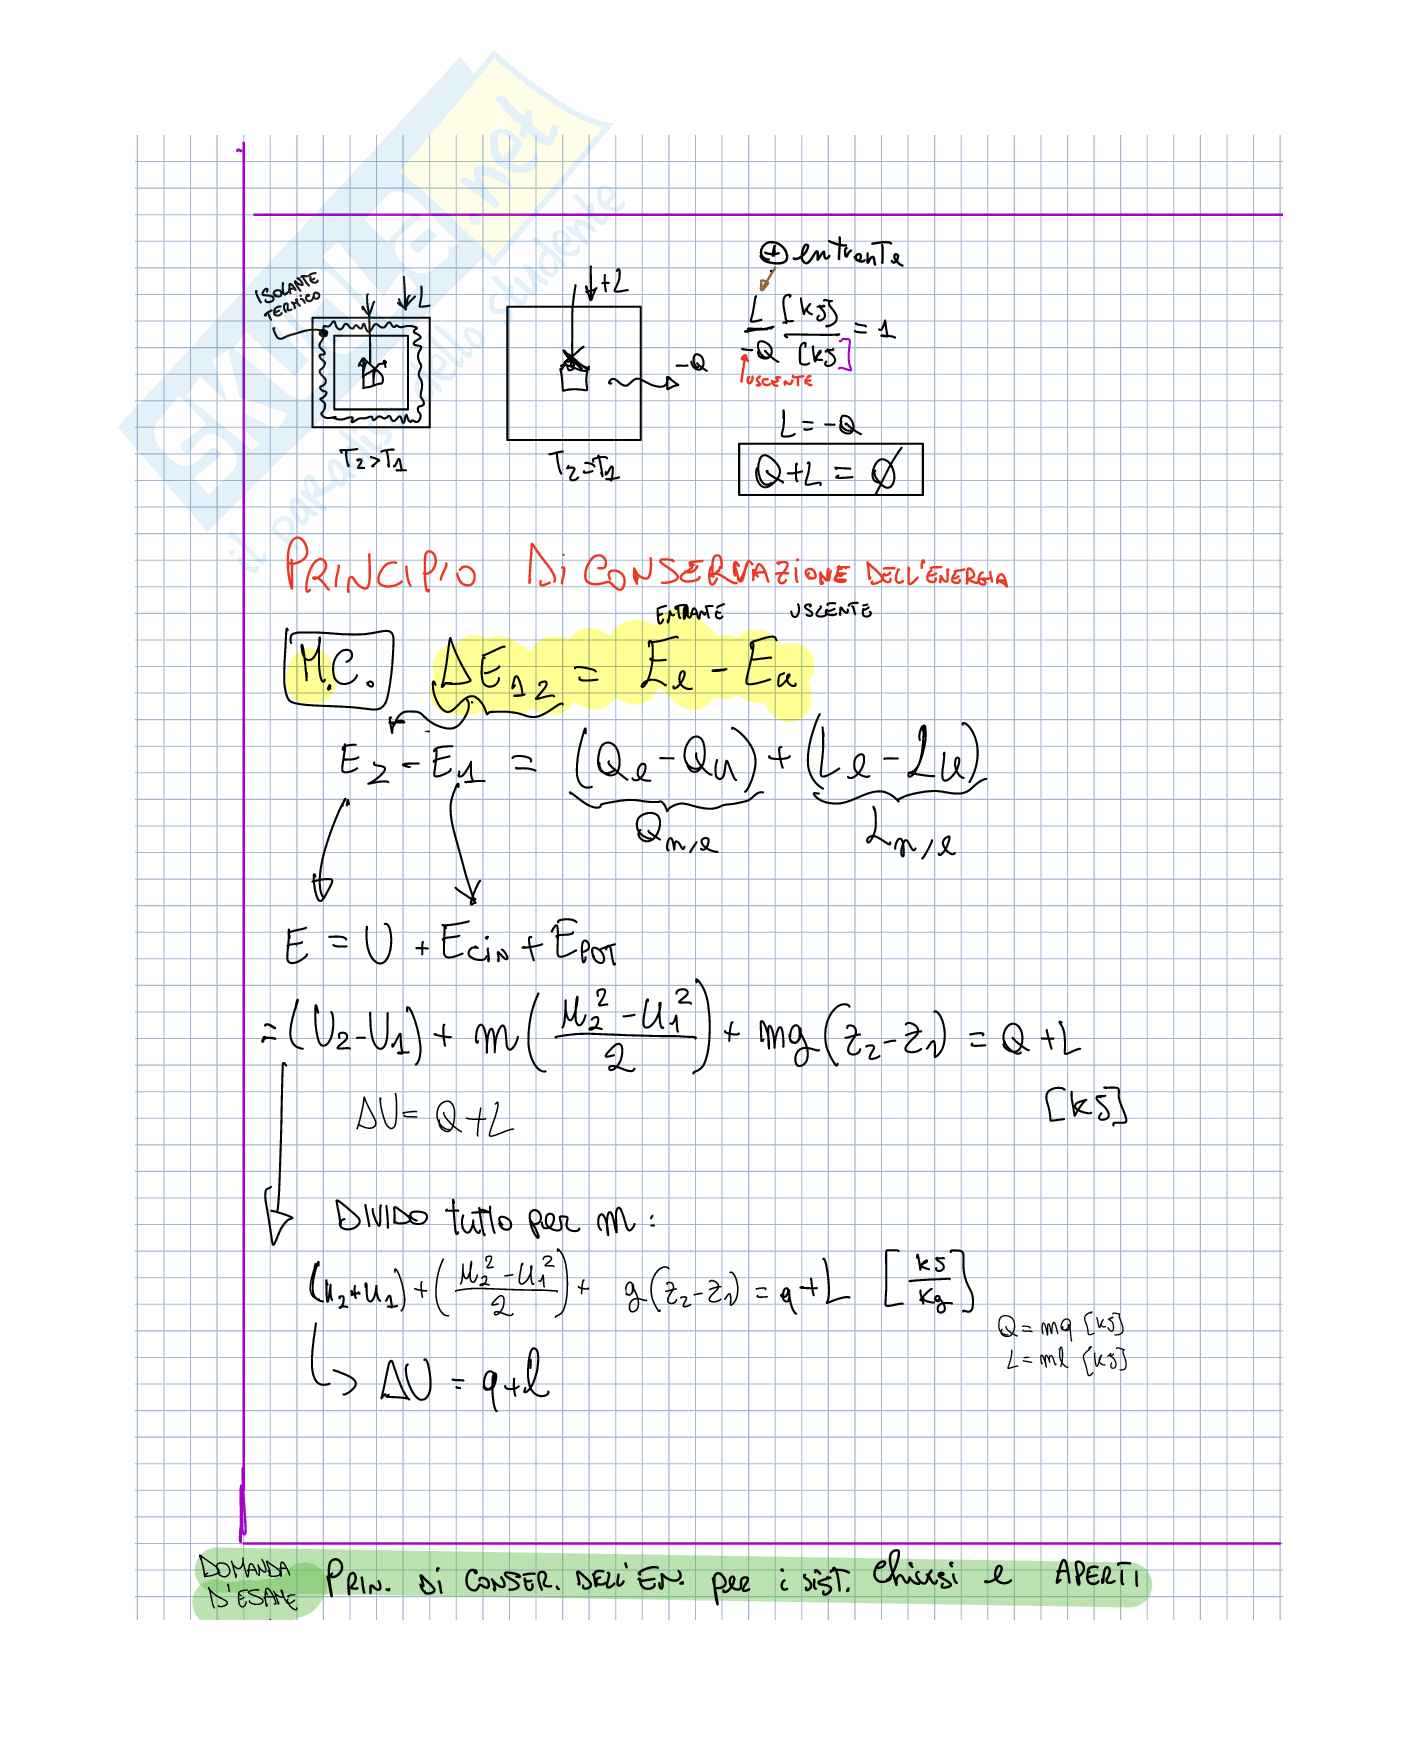 SKUOLA.net
il paradiso dello studente
⊕ entrante
ISOLANTE
TERMICO
L
+L
L [kJ]
— —— = 1
-Q [kJ]
USCENTE
-Q
L = -Q
T2>T1
T2=T1
Q+L = Ø
PRINCIPIO Di CONSERVAZIONE DELL'ENERGIA
ENTRANTE USCENTE
M.C. ΔE12 = Ee - Eu
E2 - E1 = (Qe - Qu) + (Le - Lu)
Qn,e Ln,e
E = U + Ecin + EPOT
= (U2-U1) + m((u2² - u1²)/2) + mg(z2-z1) = Q+L
[kJ]
ΔU = Q+L
DIVIDO tutto per m :
(u2+u1) + ((u2² - u1²)/2) + g(z2-z1) = q+L [kJ/kg]
Q = mq [kJ]
L = ml [kJ]
ΔU = q+l
DOMANDA
D'ESAME
PRIN. Di CONSER. DELL'EN. per i sist. Chiusi e APERTI